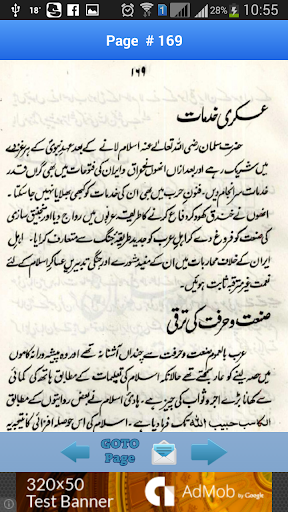 18°
28%
10:55
Page # 169
۱۶۹
عسکری خدمات
حضرت سلمان رضی اللہ تعالےٰ عنہ اسلام لانے کے بعد عہدِ نبوی کے ہر غزوے
میں شریک رہے اور بعد ازاں انھوں نے عراق و ایران کی فتوحات میں بھی گراں قدر
خدمات سرانجام دیں۔ فنونِ حرب میں بھی ان کی خدمات کو کبھی بھلایا نہیں جا سکتا۔
انھوں نے خندق کھود کر دفاع کرنے کا طریقہ عربوں میں رواج دیا اور منجنیق سازی
کی صنعت کو فروغ دے کر اہلِ عرب کو جدید طریقۂ جنگ سے متعارف کرایا۔ اہل
ایران کے خلاف محاربات میں ان کے مفید مشورے اور جنگی تدبیریں عساکرِ اسلام کے لیے
نعمت غیر مترقبہ ثابت ہوئیں۔
صنعت و حرفت کی ترقی
عرب بالعموم صنعت و حرفت سے چنداں آشنا نہ تھے اور وہ پیشہ ورانہ کاموں
میں حصہ لینے کو عار سمجھتے تھے حالانکہ اسلام کی تعلیمات کے مطابق ہاتھ کی کمائی
سے کھانا بڑے اجر و ثواب کی چیز ہے۔ ہادیٔ اسلام نے بعض روایتوں کے مطابق
الکاسب حبیب اللہ تک فرما دیا ہے۔ اسلام کی اس حوصلہ افزائی کا نتیجہ یہ
GOTO
Page
320×50
Test Banner
AdMob by Google